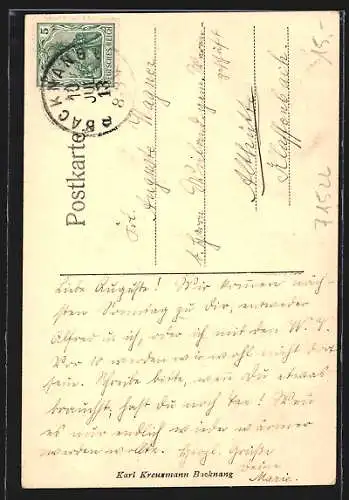 5
DEUTSCHES REICH
BACKNANG
10
JUL
13
8
Postkarte
Frl.
Auguste Wagner
b. Herrn Wieland zum
Althütte
71522
15.-
Liebe Auguste! Wir kommen näch-
sten Sonntag zu Dir, entweder
Alfred u. ich, oder ich mit den
Vor 10 werden wir wohl nicht dort
sein. Schreibe bitte, wenn Du etwas
brauchst, hast du noch Tee! Wenn
es nur endlich wieder wärmer
werden wollte. Herzl. Grüße
Deine
Marie.
Karl Kreuzmann Backnang